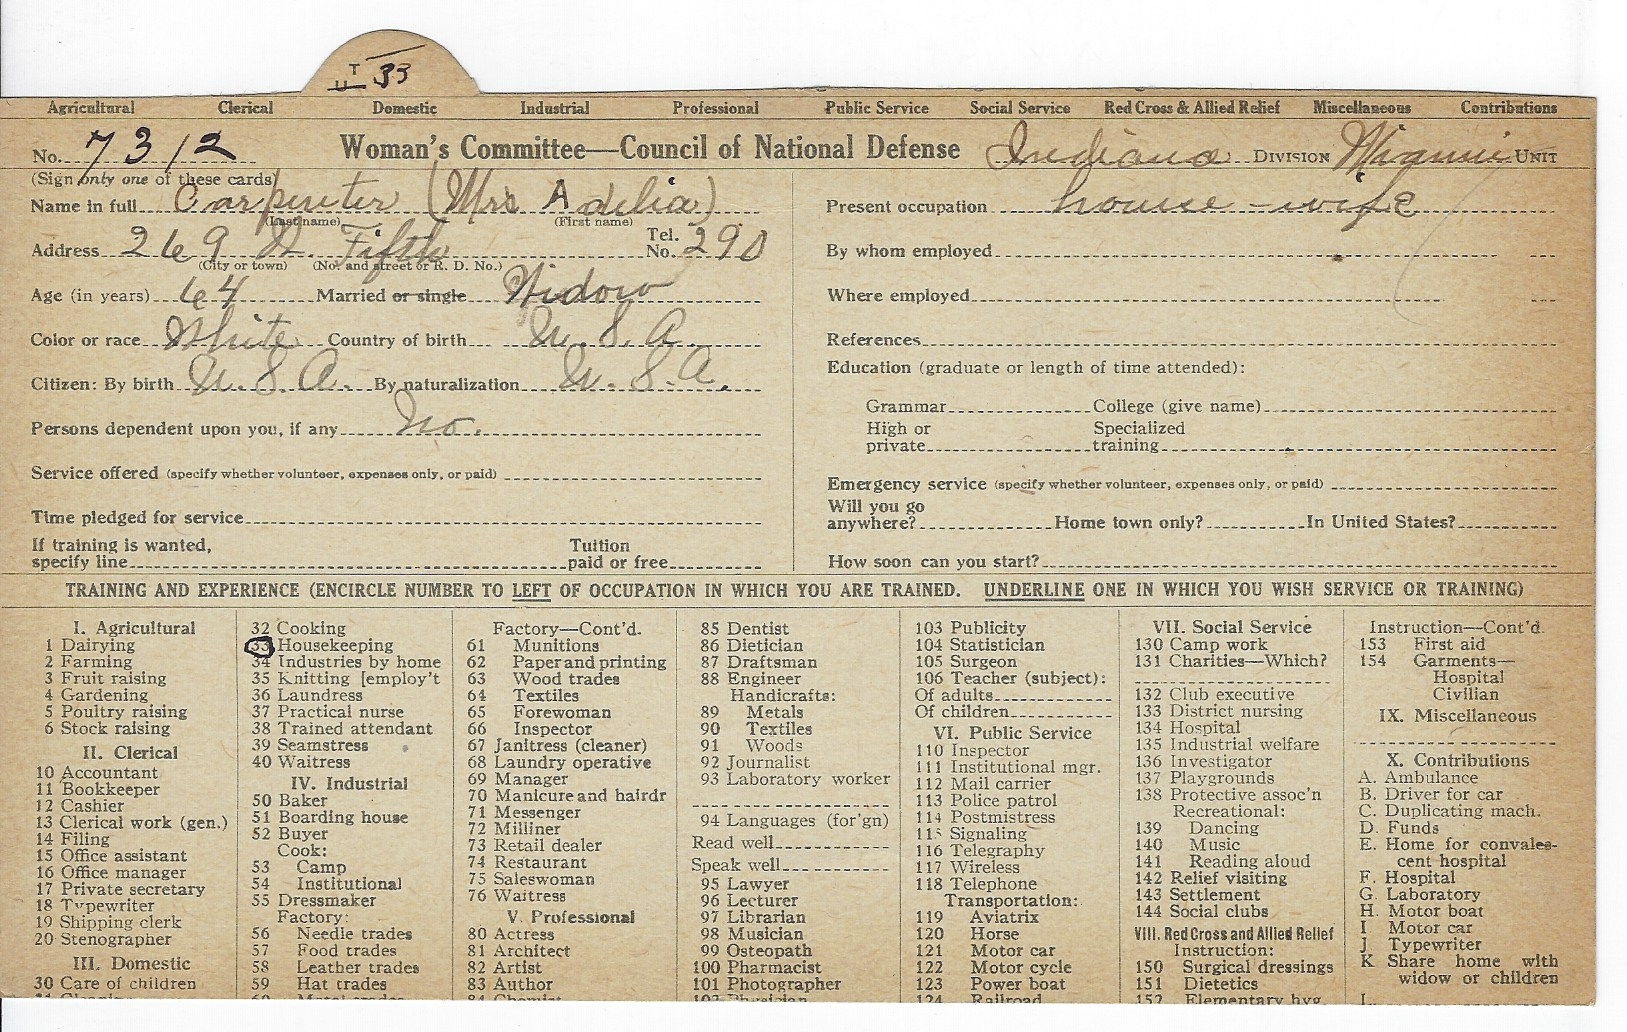 UT 33
Agricultural Clerical Domestic Industrial Professional Public Service Social Service Red Cross & Allied Relief Miscellaneous Contributions
No. 7312 Woman's Committee—Council of National Defense Indiana DIVISION Miami UNIT
(Sign only one of these cards)
Name in full Carpenter (Mrs Adelia)
(Last name) (First name)
Address 269 W. Fifth Tel. No. 290
(City or town) (No. and street or R. D. No.)
Age (in years) 64 Married or single Widow
Color or race White Country of birth U. S. A.
Citizen: By birth U. S. A. By naturalization U. S. A.
Persons dependent upon you, if any No.
Service offered (specify whether volunteer, expenses only, or paid)
Time pledged for service
If training is wanted, specify line Tuition paid or free
Present occupation house-wife
By whom employed
Where employed
References
Education (graduate or length of time attended):
Grammar College (give name)
High or private Specialized training
Emergency service (specify whether volunteer, expenses only, or paid)
Will you go anywhere? Home town only? In United States?
How soon can you start?
TRAINING AND EXPERIENCE (ENCIRCLE NUMBER TO LEFT OF OCCUPATION IN WHICH YOU ARE TRAINED. UNDERLINE ONE IN WHICH YOU WISH SERVICE OR TRAINING)
I. Agricultural
1 Dairying
2 Farming
3 Fruit raising
4 Gardening
5 Poultry raising
6 Stock raising
II. Clerical
10 Accountant
11 Bookkeeper
12 Cashier
13 Clerical work (gen.)
14 Filing
15 Office assistant
16 Office manager
17 Private secretary
18 Typewriter
19 Shipping clerk
20 Stenographer
III. Domestic
30 Care of children
31 Cleaning
32 Cooking
33 Housekeeping
34 Industries by home
35 Knitting [employ't
36 Laundress
37 Practical nurse
38 Trained attendant
39 Seamstress
40 Waitress
IV. Industrial
50 Baker
51 Boarding house
52 Buyer
Cook:
53 Camp
54 Institutional
55 Dressmaker
Factory:
56 Needle trades
57 Food trades
58 Leather trades
59 Hat trades
60 Metal trades
Factory—Cont'd.
61 Munitions
62 Paper and printing
63 Wood trades
64 Textiles
65 Forewoman
66 Inspector
67 Janitress (cleaner)
68 Laundry operative
69 Manager
70 Manicure and hairdr
71 Messenger
72 Milliner
73 Retail dealer
74 Restaurant
75 Saleswoman
76 Waitress
V. Professional
80 Actress
81 Architect
82 Artist
83 Author
84 Chemist
85 Dentist
86 Dietician
87 Draftsman
88 Engineer
Handicrafts:
89 Metals
90 Textiles
91 Woods
92 Journalist
93 Laboratory worker
94 Languages (for'gn)
Read well
Speak well
95 Lawyer
96 Lecturer
97 Librarian
98 Musician
99 Osteopath
100 Pharmacist
101 Photographer
102 Physician
103 Publicity
104 Statistician
105 Surgeon
106 Teacher (subject):
Of adults
Of children
VI. Public Service
110 Inspector
111 Institutional mgr.
112 Mail carrier
113 Police patrol
114 Postmistress
115 Signaling
116 Telegraphy
117 Wireless
118 Telephone
Transportation:
119 Aviatrix
120 Horse
121 Motor car
122 Motor cycle
123 Power boat
124 Railroad
VII. Social Service
130 Camp work
131 Charities—Which?
132 Club executive
133 District nursing
134 Hospital
135 Industrial welfare
136 Investigator
137 Playgrounds
138 Protective assoc'n
Recreational:
139 Dancing
140 Music
141 Reading aloud
142 Relief visiting
143 Settlement
144 Social clubs
VIII. Red Cross and Allied Relief
Instruction:
150 Surgical dressings
151 Dietetics
152 Elementary hyg.
Instruction—Cont'd.
153 First aid
154 Garments—
Hospital
Civilian
IX. Miscellaneous
X. Contributions
A. Ambulance
B. Driver for car
C. Duplicating mach.
D. Funds
E. Home for convales-
cent hospital
F. Hospital
G. Laboratory
H. Motor boat
I Motor car
J Typewriter
K Share home with
widow or children
L